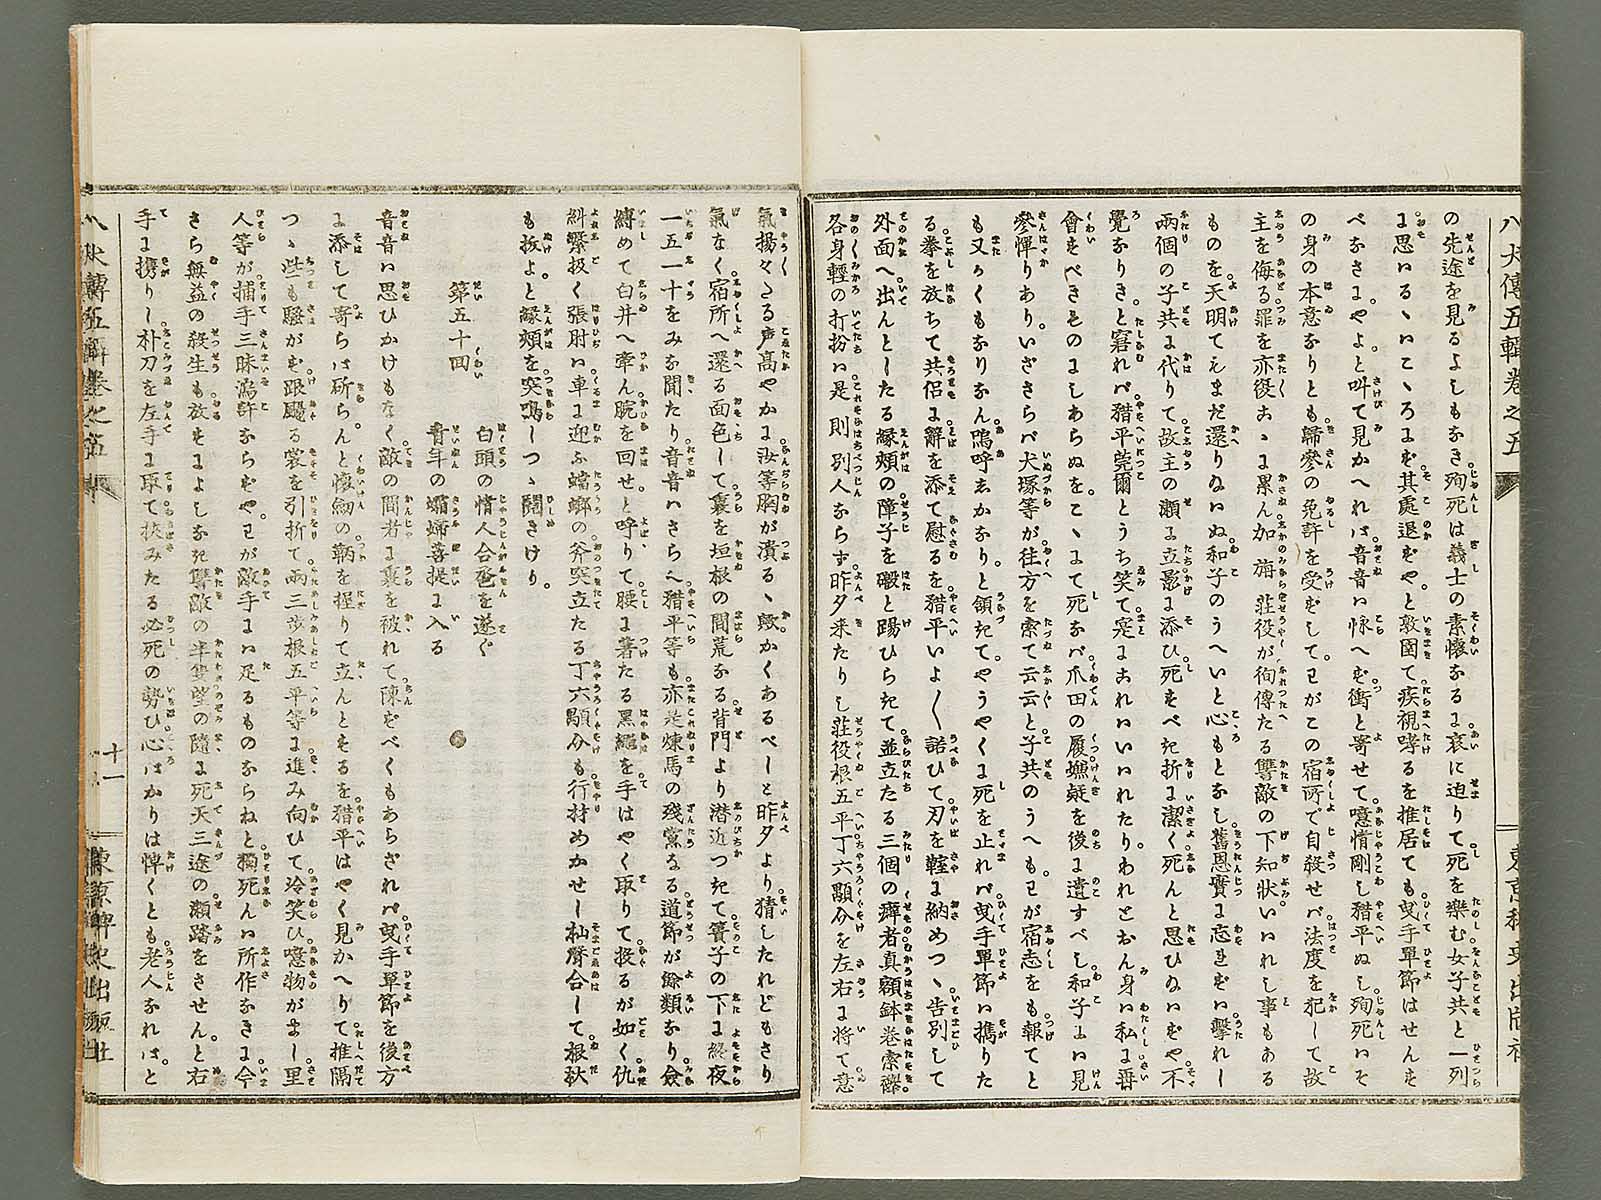 八犬傳五輯卷之五
東京稗史出版社
の先途を見るよしもなき。殉死は義士の素懷なるよ。哀に迫りて死を樂む。女子共と一列
よ思いるゝいこゝろよも。其處退ずや。と敦圉て。疾視哮るを推居ても。曳手單節はせんも
べなさよや。よと叫て見かへれば。音音い怺へも衝と寄せて。噫情剛し猎平ぬし。殉死いそ
の身の本意なりとも。歸參の免許を受ずして。わがこの宿所で自殺せバ。法度を犯して故
主を侮る。罪を亦復こゝよ累ん加旃。莊役が徇傳たる。讐敵の下知狀。いいれし事もある
ものを。天明てもまだ還りぬいぬ。和子のうへいと心もとなし。舊恩寔よ忘れずい。擊れし
兩個の子共よ代りて。故主の瀨よ立。影よ添ひ死もべた折よ。潔く死んと思ひぬいずや。不
覺なりき。と窘れバ。猎平莞爾とうち笑て。寔よおれいいいれたり。われとおん身い私よ。再
會もべきものよしあらぬを。こゝよて死なバ瓜田の履。嫌疑を後よ遺すべし。和子よい見
參憚りあり。いざさらバ犬塚等が往方を索て云云と。子共のうへもわが宿志も。報てと
も又かくもなりなん。嗚呼しかなり。と領きて。やうやくよ死を止れバ。曳手單節い攜りた
る。拳を放ちて共侶よ。解を添て慰るを。猎平いよ〳〵諾ひて。刃を鞘よ納めつゝ。告別して
外面へ。出んとしたる縁頬の。障子を礑と踢ひらきて。並立たる三個の癖者。眞額鉢卷索襷。
各身輕の打扮い。是則別人ならず。昨夕来たりし莊役根五平。丁六顒介を左右よ將て。意
氣揚々たる声高やかよ。汝等胸が潰るゝ歟。かくあるべしと昨夕より。猜したれどもさり
氣なく。宿所へ還る面色して。裏を垣根の間荒なる。背門より潜近つきて。簀子の下よ終夜
一五一十をみな聞たり。音音いさら也猎平等も。亦是煉馬の殘黨なる。道節が餘類なり。僉
縛めて白井へ牽ん。腕を回せと呼りて。腰よ著たる黑繩を。手はやく取りて投るが如く。仇
糾繋扱く張肘い。車よ迎ふ蟷螂の斧。突立たる丁六顒介も。行桚めかせし杣臀合して。根秋
も抜よ。と縁頬を。突鳴しつゝ鬩きけり。
第五十回
白頭の情人合卺を遂ぐ
靑年の孀婦菩提よ入る
音音い思ひかけもなく。敵の間者よ裏を被れて。陳ずべくもあらざれバ。曳手單節を後方
よ添して。寄らば斫らんと懷劒の。鞆を握りて立んとするを。猎平はやく見かへりて。推隔
つゝ些も騷がず。跟䠖る裳を引折て。兩三歩根五平等よ進み向ひて冷笑ひ。噫物がましし里
人等が。捕手三昧鴻許ならずや。わが敵手よい足るものならねど。獨死んい所作なきよ。今
さら無益の殺生も。放すよよしなき讐敵の半隻。望の隨よ死天三途の瀨踏をさせん。と右
手よ攜りし朴刀を。左手よ取て。挾みたる。必死の勢ひ心ばかりは。悍くとも老人なれば。と
八犬傳五輯卷之五
十一
東京稗史出版社